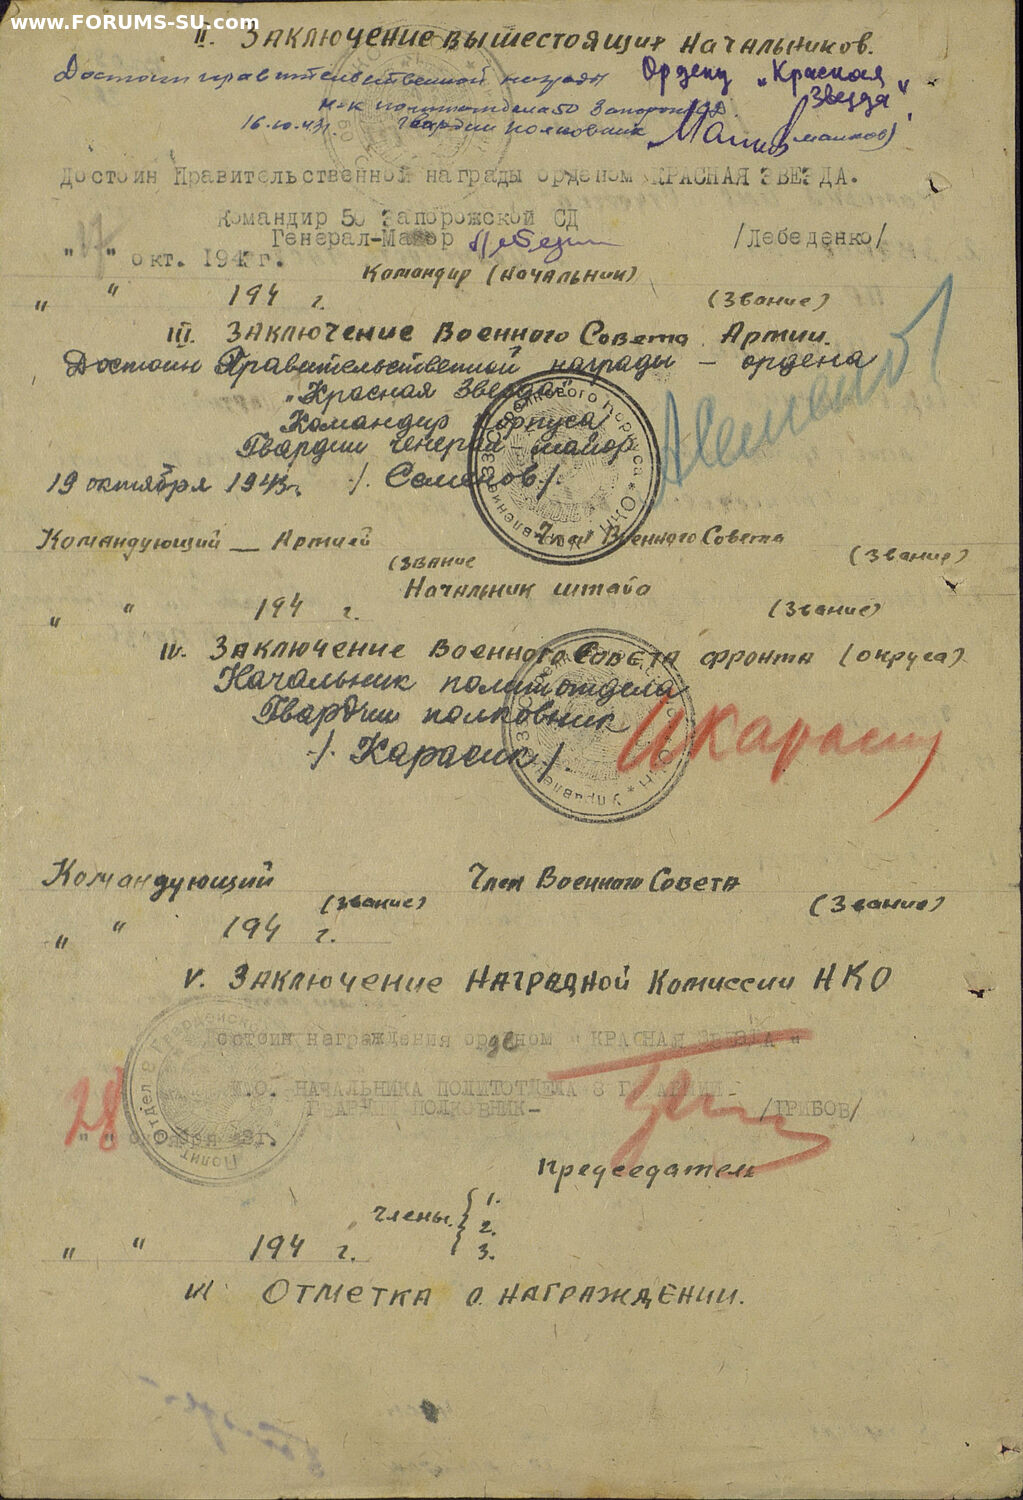 www.FORUMS-SU.com
II. Заключение вышестоящих начальников.
Достоин правительственной награды Ордену „Красная Звезда"
Н-к политотдела 50 Запорож СД.
16.10.43г. гвардии полковник
Достоин Правительственной награды орденом КРАСНАЯ ЗВЕЗДА.
Командир 50 Запорожской СД
Генерал-Майор /Лебеденко/
" 17 " окт. 194 г.
Командир (начальник)
" " 194 г. (звание)
III. Заключение Военного Совета Армии.
Достоин Правительственной награды – ордена
„Красная Звезда"
Командир Корпуса
Гвардии генерал-майор
19 октября 1943г. /. Семенов/.
Командующий — Армией Член Военного Совета
(звание (звание)
Начальник штаба
" " 194 г. (звание)
IV. Заключение Военного Совета фронта (округа)
Начальник политотдела
Гвардии полковник
/. Карасик/. ИКарасик
Командующий Член Военного Совета
(звание) (звание)
" " 194 г.
V. Заключение Наградной Комиссии НКО
Достоин награждения орденом "КРАСНАЯ ЗВЕЗДА"
И.О. НАЧАЛЬНИКА ПОЛИТОТДЕЛА 8 ГВ.АРМИИ-
ГВАРДИИ ПОЛКОВНИК- /ГРИБОВ/
" 28 " октября 43г.
Председатель
Члены 1.
2.
3.
" " 194 г.
VI Отметка о награждении.